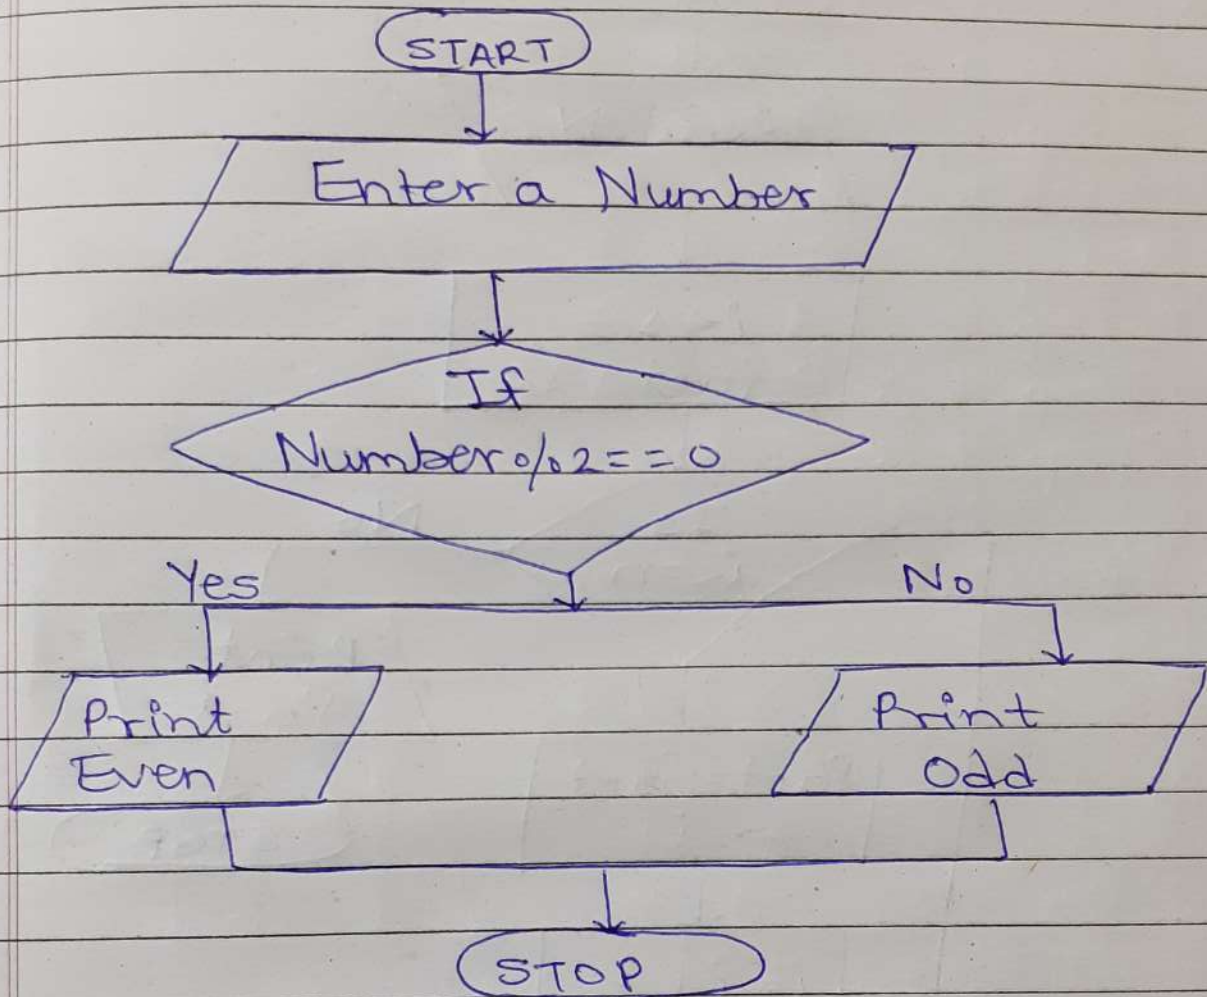 START
Enter a Number
If
Number%2==0
Yes
No
Print
Even
Print
Odd
STOP